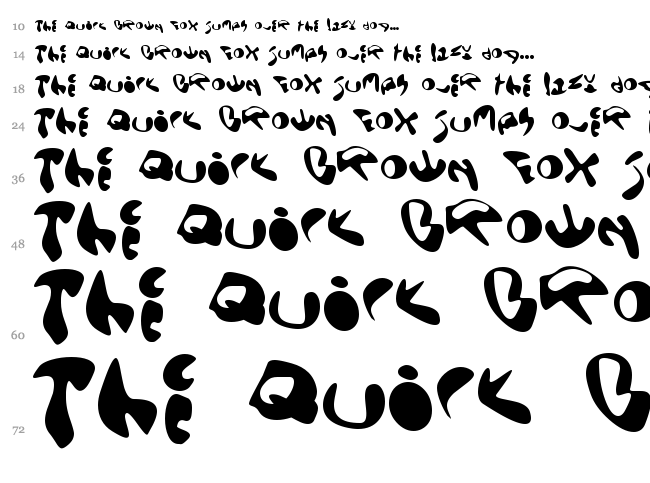 10 The Quick Brown Fox jumps over the lazy dog...
14 The Quick Brown Fox jumps over the lazy dog...
18 The Quick Brown Fox jumps over the lazy dog
24 The Quick Brown Fox jumps over
36 The Quick Brown Fox j
48 The Quick Brown
60 The Quick Bro
72 The Quick B